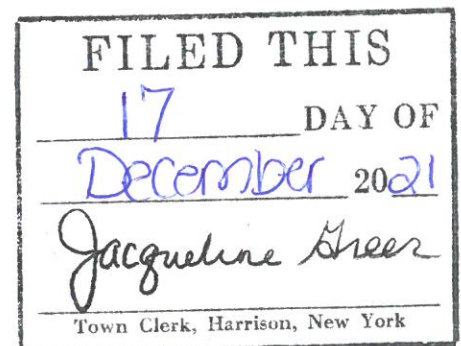 FILED THIS
17 DAY OF
December 2021
Jacqueline Greer
Town Clerk, Harrison, New York